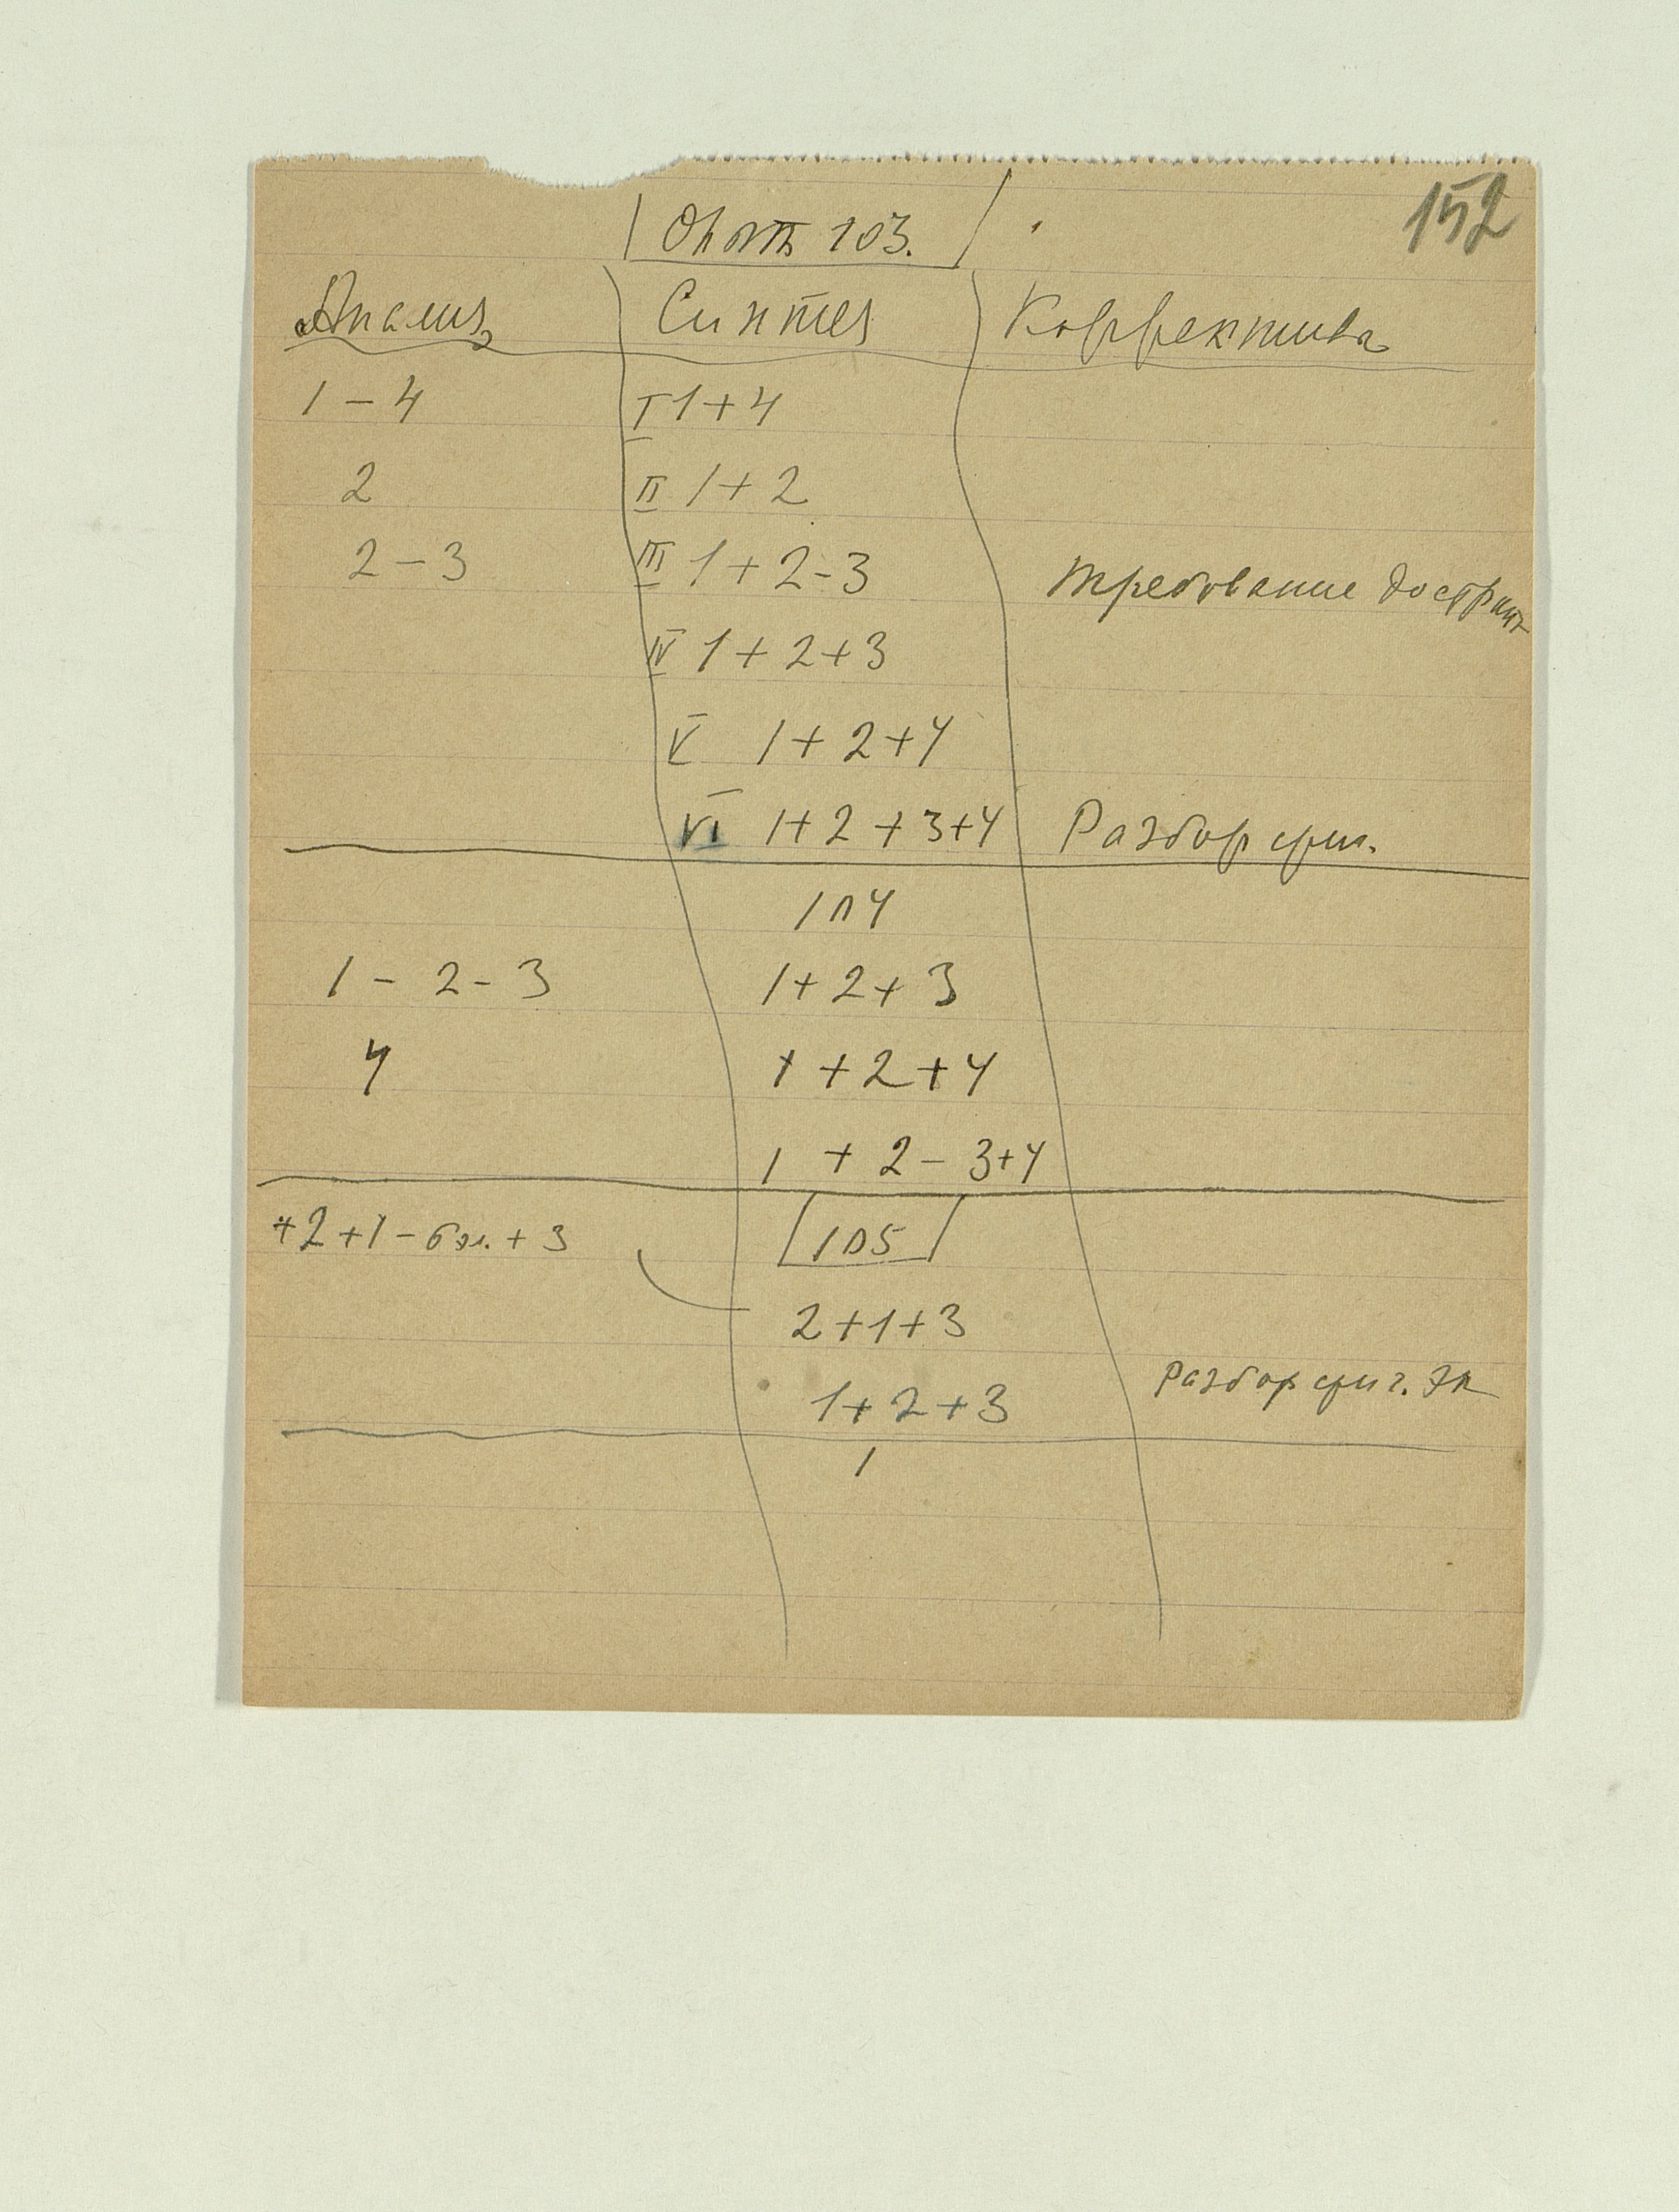 152
Опыт 103.
Анализ Синтез Корректива
1 – 4 I 1+4
2 II 1+2
2 – 3 III 1+2-3 Требование
IV 1+2+3
V 1+2+4
VI 1+2+3+4 Разбор фиг.
104
1 – 2 – 3 1+2+3
4 1+2+4
1 + 2 – 3+4
+2+1 – бэл. + 3 105
2+1+3
1+2+3 Разбор фиг. эк
1